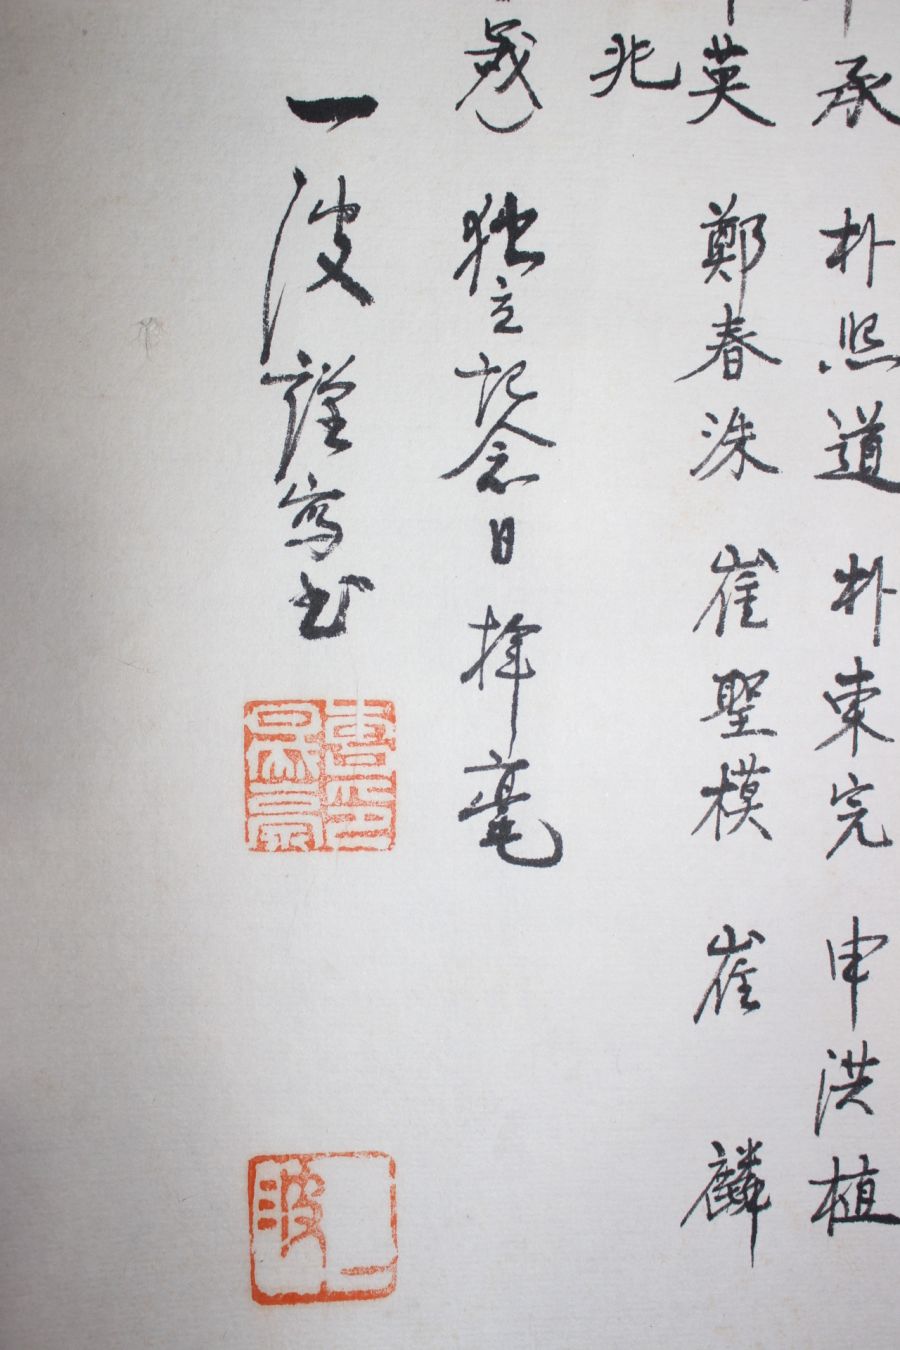 承 朴熙道 朴東完 申洪植
英 鄭春洙 崔聖模 崔 麟
兆
歲) 独立記念日 揮毫
一波謹寫書
一波